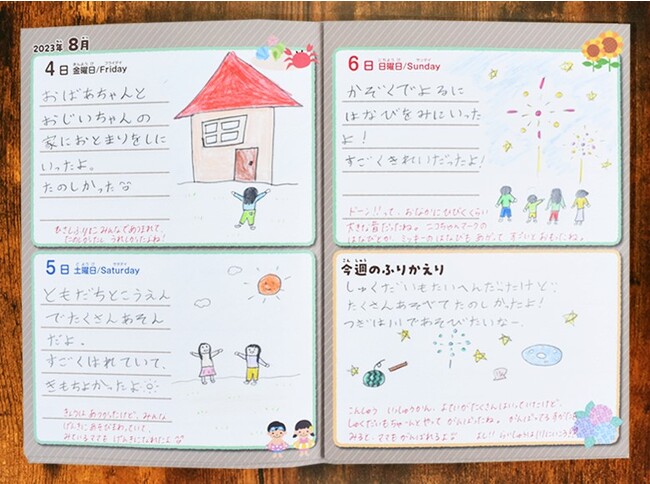 2023年 8月
4日 金曜日/Friday
おばあちゃんと
おじいちゃんの
家におとまりをしに
いったよ。
たのしかった
ひさしぶりにみんなであつまれて、
たのしかったし うれしかったよね!
5日 土曜日/Saturday
ともだちとこうえん
でたくさんあそん
だよ。
すごくはれていて、
きもちよかったよ
きょうは あつかったけど、みんな
げんきに あそびまわっていて、
みているママも げんきになれたよ
6日 日曜日/Sunday
かぞくでよるに
はなびをみにいった
よ!
すごくきれいだったよ!
ドーン!!って、おなかにひびくくらい
大きな音だったね。ニコちゃんマークの
はなびとか、ミッキーのはなびも あがって すごいとおもったね。
今週のふりかえり
しゅくだいもたいへんだったけど、
たくさんあそべてたのしかったよ!
つぎは川であそびたいなー。
こんしゅう いっしゅうかん、よていがたくさんはいっていたけど、
しゅくだいもちゃんとやって がんばったね。がんばってるすがたを
みると、ママもがんばれるよ